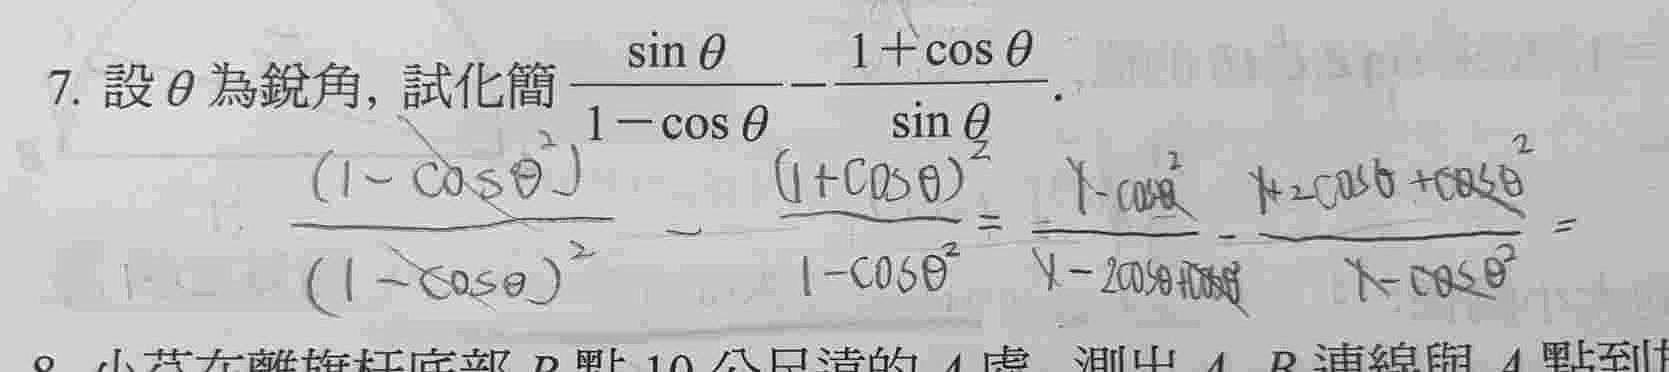 7. 設 θ 為銳角, 試化簡 sin θ / 1－cos θ － 1＋cos θ / sin θ .
(1-cosθ²) / (1-cosθ)² - (1+cosθ)² / 1-cosθ² = 1-cosθ² / 1-2cosθ+cosθ² - 1+2cosθ+cosθ² / 1-cosθ² =
8. 小芬在離旗杆底部 B 點 10 公尺遠的 A 處, 測出 A、B 連線與 A 點到